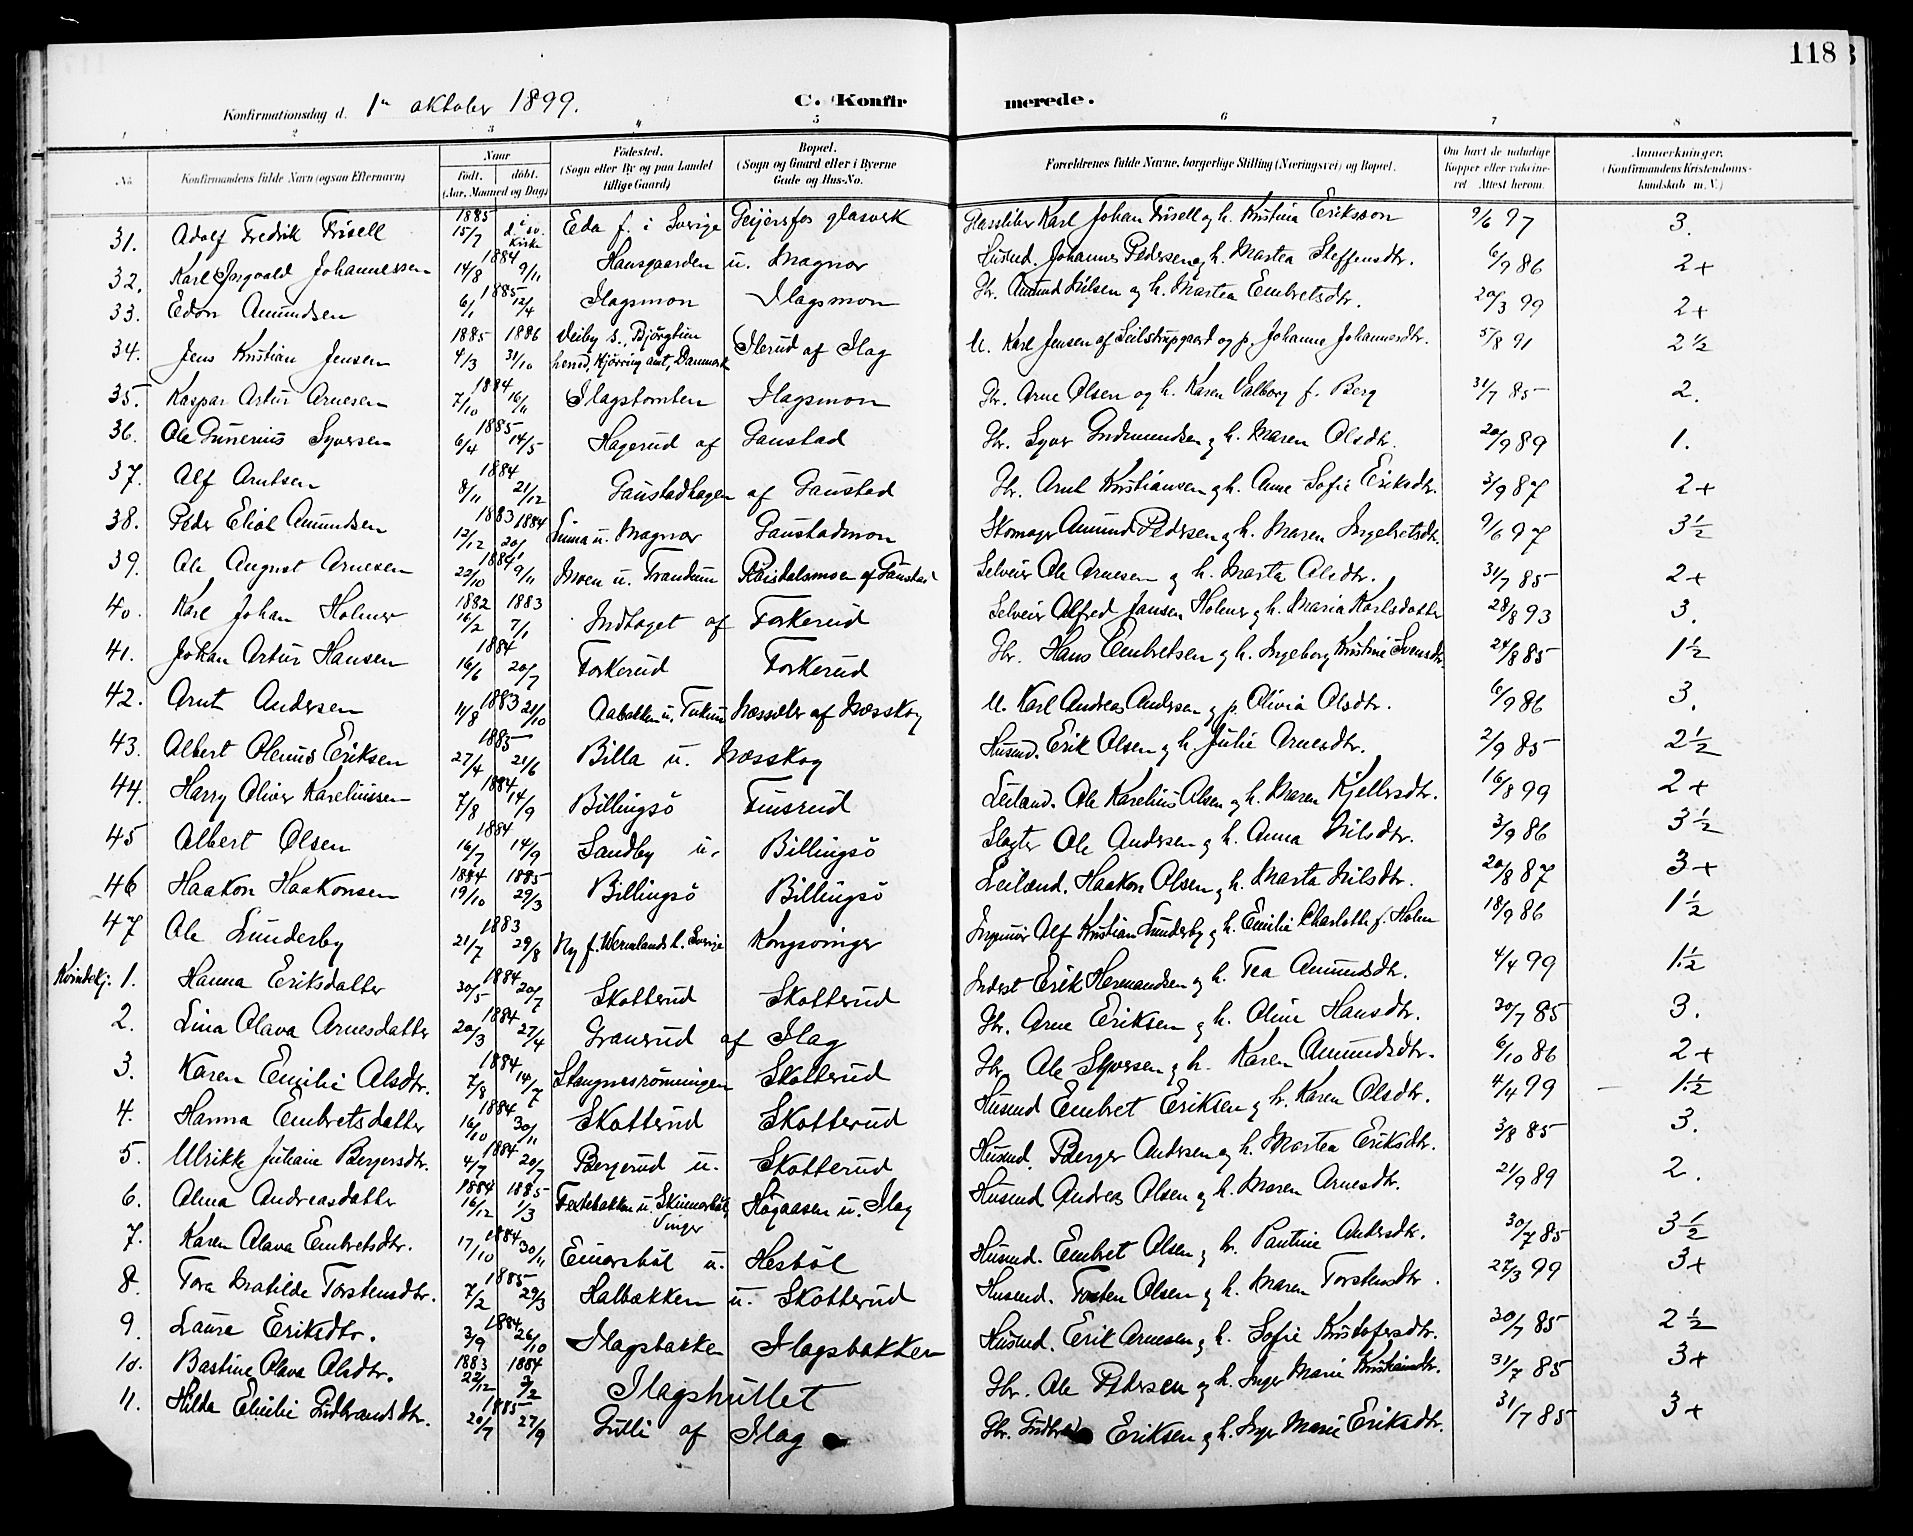 118
Konfirmationsdag d. 1ste oktober 1899.
C. Konfirmerede.
1 2 3 4 5 6 7 8
No. | Konfirmandens fulde Navn (ogsaa Efternavn) | Naar født. døbt. (Aar, Maaned og Dag) | Fødested. (Sogn eller By og paa Landet tillige Gaard) | Bopæl. (Sogn og Gaard eller i Byerne Gade og Hus-No. | Forældrenes fulde Navne, borgerlige Stilling (Næringsvei) og Bopæl. | Om havt de naturlige Kopper eller vaccineret. Attest herom. | Anmærkninger. (Konfirmandens Kristendomskundskab m. V.)
31. Adolf Fredrik Frisell 1885 15/7 d. i sv. Kirke Eda f. i Sverige Geijersfos glasverk Glassliber Karl Johan Frisell og h. Kristina Eriksson 9/6 97 3.
32. Karl Ingvald Johannessen 1884 14/8 9/11 Hansgaarden u. Magnor Husmd. Johannes Pedersen og h. Martea Steffensdtr. 6/9 86 2+
33. Edon Amundsen 1885 6/1 12/4 Slagsmon Slagsmon Gbr. Amund Nilsen og h. Martea Embretsdtr. 20/3 99 2+
34. Jens Kristian Jensen 1885 4/3 1886 31/10 Veiby s., Bjørgtun herred, Hjørring amt, Danmark Slerud af Slag U. Karl Jensen af Seilstrupgaard og p. Johanne Johannesdtr. 5/8 91 2 1/2
35. Kaspar Artur Arnesen 1884 7/10 16/11 Slagstomten Slagsmon Gbr. Arne Olsen og h. Karen Valborg f. Berg 31/7 85 2.
36. Ole Gunerius Syversen 1885 6/4 14/5 Hagerud af Gaustad Gbr. Syver Gudmundsen og h. Maren Olsdtr. 20/9 89 1.
37. Alf Arntsen 1884 8/11 21/12 Gaustadhagen af Gaustad Gbr. Arnt Kristiansen og h. Anne Sofie Eriksdtr. 3/9 87 2+
38. Peder Eliot Amundsen 1883 12/12 1884 20/1 Linna u. Magnor Gaustadmon Skomager Amund Pedersen og h. Maren Ingebretsdtr. 9/6 97 3 1/2
39. Ole August Arnesen 1884 22/10 9/11 Moen u. Trandum Roisdalsmoen af Gaustad Selveier Ole Arnesen og h. Marta Olsdtr. 31/7 85 2+
40. Karl Johan Holmer 1882 16/2 1883 7/1 Indtaget af Torkerud Selveier Alfred Jansen Holmer og h. Maria Karlsdatter 28/8 93 3.
41. Johan Artur Hansen 1884 16/6 20/7 Torkerud Torkerud Gbr. Hans Embretsen og h. Ingeborg Kristine Svensdtr. 24/8 85 1 1/2
42. Arnt Andersen 1883 11/8 21/10 Aabakken u. Næssæter af Næsskog U. Karl Andreas Andersen og p. Olivia Olsdtr. 6/9 86 3.
43. Albert Olenius Eriksen 1885 27/4 21/6 Billa u. Næsskog Husmd. Erik Olsen og h. Julie Arnesdtr. 2/9 85 2 1/2
44. Harry Oliver Kareliussen 1884 7/8 14/9 Billingsö Finsrud Leiland. Ole Karelius Olsen og h. Maren Kjellsdtr. 16/8 99 2+
45 Albert Olsen 1884 16/7 14/9 Sandby u. Billingsö Slagter Ole Andersen og h. Anna Nilsdtr. 3/9 86 3 1/2
46 Haakon Haakonsen 1884 19/10 1885 29/3 Billingsö Billingsö Leilænd. Haakon Olsen og h. Marta Nilsdtr. 20/8 87 3+
47 Ole Lunderby 1883 21/7 29/8 Ny f. Vermlands l. Sverige Kongsvinger Ingeniør Alf Kristian Lunderby og h. Emilie Charlotte f. Holm 18/9 86 1 1/2
Kvindekj: 1. Hanna Eriksdatter 1884 30/5 20/7 Skotterud Skotterud Inderst Erik Hermandsen og h. Tea Amundsdtr. 4/4 99 1 1/2
2. Lina Olava Arnesdatter 1884 20/3 27/4 Granerud af Slag Gbr. Arne Eriksen og h. Oline Hansdtr. 30/7 85 3.
3. Karen Emilie Olsdtr. 1884 7/8 14/7 Stangnesrönningen Skotterud Gbr. Ole Syversen og h. Karen Amundsdtr. 6/10 86 2+
4. Hanna Embretsdatter 1884 16/10 30/11 Skotterud Skotterud Husmd Embret Eriksen og h. Karen Olsdtr. 4/4 99 1 1/2
5. Ulrikke Juliane Bergersdtr. 1884 4/7 20/7 Bergerud u. Skotterud Husmd. Berger Andersen og h. Martea Eriksdtr. 3/8 85 3.
6. Olma Andreasdatter 1884 16/12 1885 1/3 Vinger Högaasen u. Slag Husmd Andreas Olsen og h. Maren Arnesdtr. 21/9 89 2.
7. Karen Olava Embretsdtr. 1884 17/10 30/11 Emarsböl u. Hesböl Husmd. Embret Olsen og h. Pauline Andersdtr. 30/7 85 3 1/2
8. Tora Matilde Torstensdtr. 1885 7/2 29/3 Halbakken u. Skotterud Husmd. Torsten Olsen og h. Maren Torstensdtr. 27/3 99 3+
9. Laura Eriksdtr. 1884 3/9 26/10 Slagsbakke Slagsbakken Husmd. Erik Arnesen og h. Sofie Kristofersdtr. 30/7 85 2 1/2
10. Bastine Olava Olsdtr. 1883 22/12 1884 2/2 Slagshullet Gbr. Ole Pedersen og h. Inger Marie Kristiansdtr. 31/7 85 3+
11. Hilda Emilie Gudbrandsdtr. 1885 20/7 27/9 Gulli af Slag Gbr. Gudbrand Eriksen og h. Inger Marie Eriksdtr. 31/7 85 3+